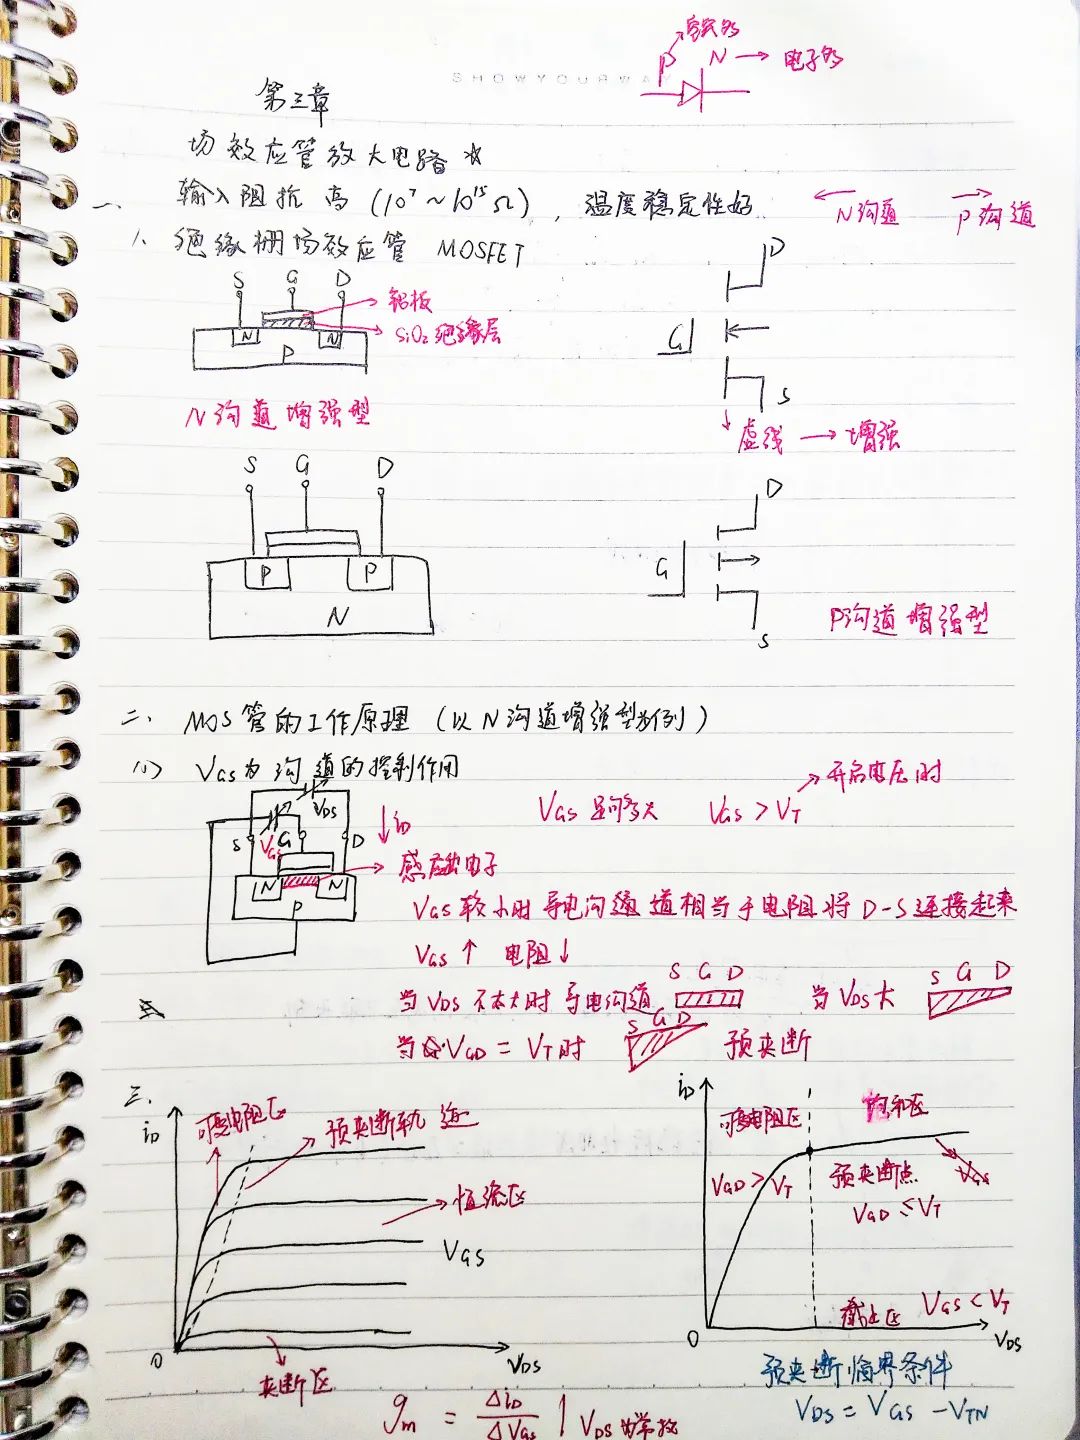 空穴多
P N → 电子多
SHOWYOURWA
第三章
场效应管放大电路 ☆
一、 输入阻抗高 (10⁷～10¹⁵Ω), 温度稳定性好
← N沟道 → P沟道
1、绝缘栅场效应管 MOSFET
S G D
铝板
SiO₂绝缘层
N N
P
N沟道增强型
D
G
S
↓虚线 → 增强
S G D
P P
N
D
G
S
P沟道增强型
二、MOS管的工作原理 (以N沟道增强型为例)
(1) VGS为沟道的控制作用
VDS
VGS
S G D
N N
P
↓iD
VGS 足够大 VGS > VT → 开启电压时
感应出电子
VGS较小时 导电沟通道相当于电阻将D-S连接起来
VGS ↑ 电阻↓
当VDS不太大时导电沟道 S G D
当VDS大 S G D
当VGD = VT时 S G D 预夹断
三、
iD
可变电阻区
预夹断轨迹
恒流区
VGS
夹断区
0 VDS
iD
可变电阻区 饱和区
VGD > VT
预夹断点
VGD ≤ VT
截止区 VGS < VT
0 VDS
预夹断临界条件
VDS = VGS − VTN
gm = ΔiD / ΔVGS | VDS为常数